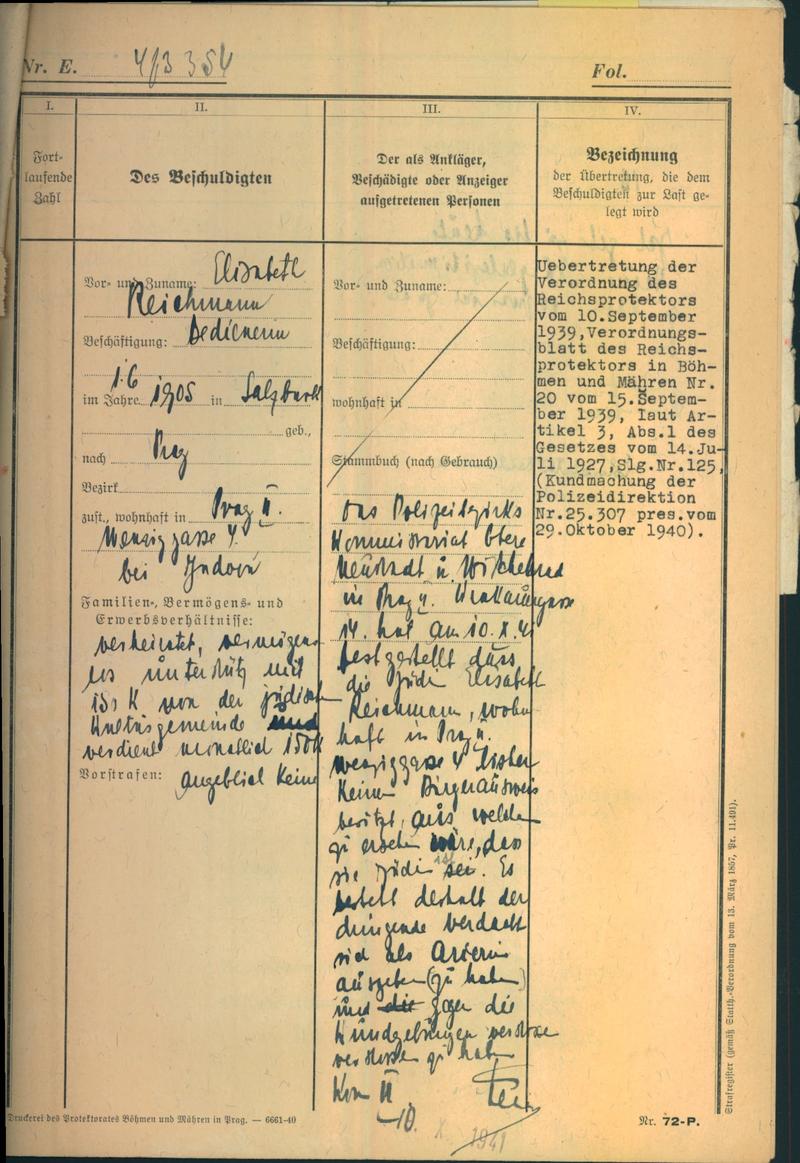 Nr. E. 4/3 354
Fol.
I.
II.
III.
IV.
Fort-
laufende
Zahl
Des Beschuldigten
Der als Ankläger,
Beschädigte oder Anzeiger
aufgetretenen Personen
Bezeichnung
der Übertretung, die dem
Beschuldigten zur Last ge-
legt wird
Vor- und Zuname: Elisabeth
Reichmann
Beschäftigung: Bedienerin
1.6
im Jahre 1905 in Salzburk
geb.,
nach Prag
Bezirk
zust., wohnhaft in Prag II.
Wenziggasse 4.
bei
Familien-, Vermögens- und
Erwerbsverhältnisse:
verheiratet, vermögens
los unterstütz mit
K von der jüdischen
Kultusgemeinde und
verdient monatlich 150K
Vorstrafen: angeblich keine
Vor- und Zuname:
Beschäftigung:
wohnhaft in
Stammbuch (nach Gebrauch)
Das Polizeibezirks
Kommissariat Obere
Neustadt u. Wischehrad
in Prag II.
14. hat am 10.X.41
festgestellt dass
die Jüdin Elisabeth
Reichmann, wohn
haft in Prag II.
Wenziggasse 4 bisher
keinen Bürgerausweis
besitzt, aus welchem
zu ersehen wäre, dass
sie Jüdin ist sei. Es
besteht deshalb der
dringende Verdacht
sich als Arierin
ausgeben (zu haben)
und die gegen die
Kundgebungen
verstossen zu haben
Kom II
10. X. 1941
Uebertretung der
Verordnung des
Reichsprotektors
vom 10.September
1939,Verordnungs-
blatt des Reichs-
protektors in Böh-
men und Mähren Nr.
20 vom 15.Septem-
ber 1939, laut Ar-
tikel 3, Abs.1 des
Gesetzes vom 14.Ju-
li 1927,Slg.Nr.125,
(Kundmachung der
Polizeidirektion
Nr.25.307 pres.vom
29.Oktober 1940).
Strafregister (gemäß Statth.-Verordnung vom 13. März 1857, Nr. 11.491).
Druckerei des Protektorates Böhmen und Mähren in Prag. — 6661-40
Nr. 72-P.